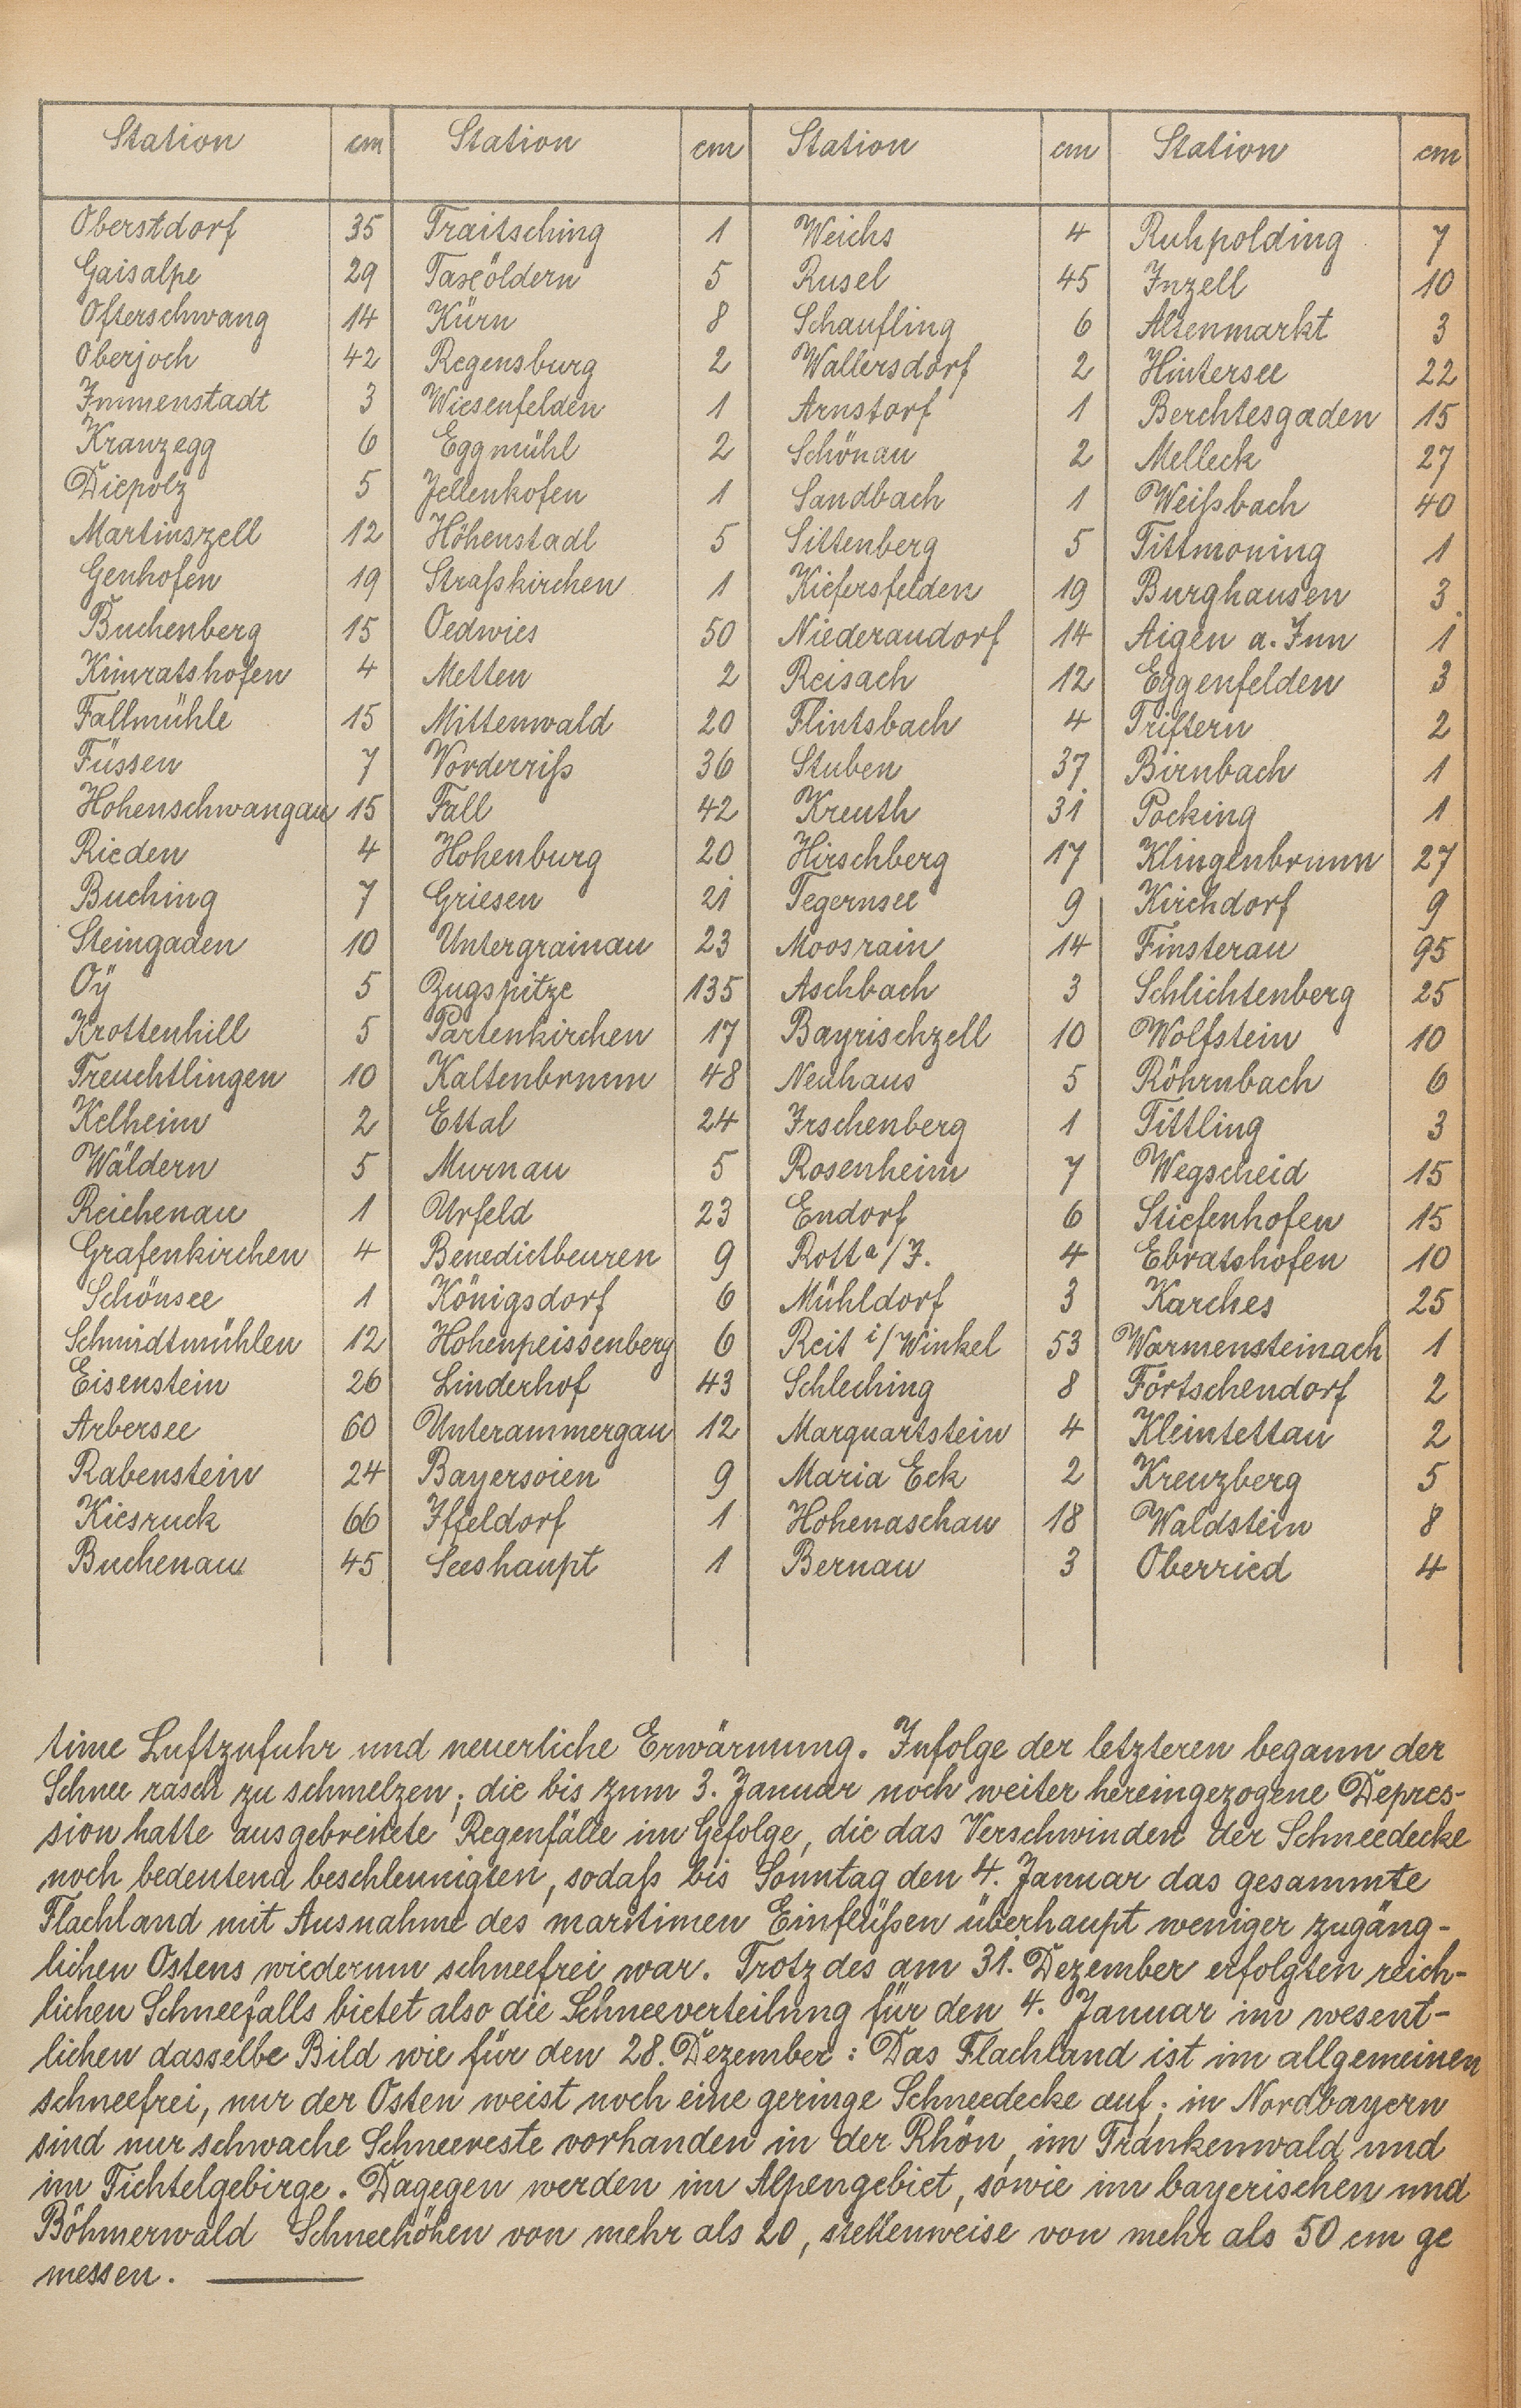 Station cm Station cm Station cm Station cm
Oberstdorf 35 Traitsching 1 Weichs 4 Ruhpolding 7
Gaisalpe 29 Taxöldern 5 Rusel 45 Inzell 10
Ofterschwang 14 Kürn 8 Schaufling 6 Altenmarkt 3
Oberjoch 42 Regensburg 2 Wallersdorf 2 Hintersee 22
Immenstadt 3 Wiesenfelden 1 Arnstorf 1 Berchtesgaden 15
Kranzegg 6 Eggmühl 2 Schönau 2 Melleck 27
Diepolz 5 Jellenkofen 1 Sandbach 1 Weißbach 40
Martinszell 12 Höhenstadl 5 Sittenberg 5 Tittmoning 1
Genhofen 19 Straßkirchen 1 Kiefersfelden 19 Burghausen 3
Buchenberg 15 Oedwies 50 Niederaudorf 14 Aigen a. Inn 1
Kimratshofen 4 Metten 2 Reisach 12 Eggenfelden 3
Fallmühle 15 Mittenwald 20 Flintsbach 4 Triftern 2
Füssen 7 Vorderriß 36 Stuben 37 Birnbach 1
Hohenschwangau 15 Fall 42 Kreuth 31 Pocking 1
Rieden 4 Hohenburg 20 Hirschberg 17 Klingenbrunn 27
Buching 7 Griesen 21 Tegernsee 9 Kirchdorf 9
Steingaden 10 Untergrainau 23 Moosrain 14 Finsterau 95
Oÿ 5 Zugspitze 135 Aschbach 3 Schlichtenberg 25
Krottenhill 5 Partenkirchen 17 Bayrischzell 10 Wolfstein 10
Treuchtlingen 10 Kaltenbrunn 48 Neuhaus 5 Röhrnbach 6
Kelheim 2 Ettal 24 Irschenberg 1 Tittling 3
Wäldern 5 Murnau 5 Rosenheim 7 Wegscheid 15
Reichenau 1 Urfeld 23 Endorf 6 Stiefenhofen 15
Grafenkirchen 4 Benedictbeuren 9 Rott a/I. 4 Ebratshofen 10
Schönsee 1 Königsdorf 6 Mühldorf 3 Karches 25
Schmidtmühlen 12 Hohenpeissenberg 6 Reit i/Winkel 53 Warmensteinach 1
Eisenstein 26 Linderhof 43 Schleching 8 Förtschendorf 2
Arbersee 60 Unterammergau 12 Marquartstein 4 Kleintettau 2
Rabenstein 24 Bayersoien 9 Maria Eck 2 Kreuzberg 5
Kiesruck 66 Iffeldorf 1 Hohenaschau 18 Waldstein 8
Buchenau 45 Seeshaupt 1 Bernau 3 Oberried 4
time Luftzufuhr und neuerliche Erwärmung. Infolge der letzteren begann der
Schnee rasch zu schmelzen; die bis zum 3. Januar noch weiter hereingezogene Depres-
sion hatte ausgebreitete Regenfälle im Gefolge, die das Verschwinden der Schneedecke
noch bedeutend beschleunigten, sodaß bis Sonntag den 4. Januar das gesammte
Flachland mit Ausnahme des maritimen Einflüßen überhaupt weniger zugäng-
lichen Ostens wiederum schneefrei war. Trotz des am 31. Dezember erfolgten reich-
lichen Schneefalls bietet also die Schneeverteilung für den 4. Januar im wesent-
lichen dasselbe Bild wie für den 28. Dezember: Das Flachland ist im allgemeinen
schneefrei, nur der Osten weist noch eine geringe Schneedecke auf; in Nordbayern
sind nur schwache Schneereste vorhanden in der Rhön, im Frankenwald und
im Fichtelgebirge. Dagegen werden im Alpengebiet, sowie im bayerischen und
Böhmerwald Schneehöhen von mehr als 20, stellenweise von mehr als 50 cm ge
messen.